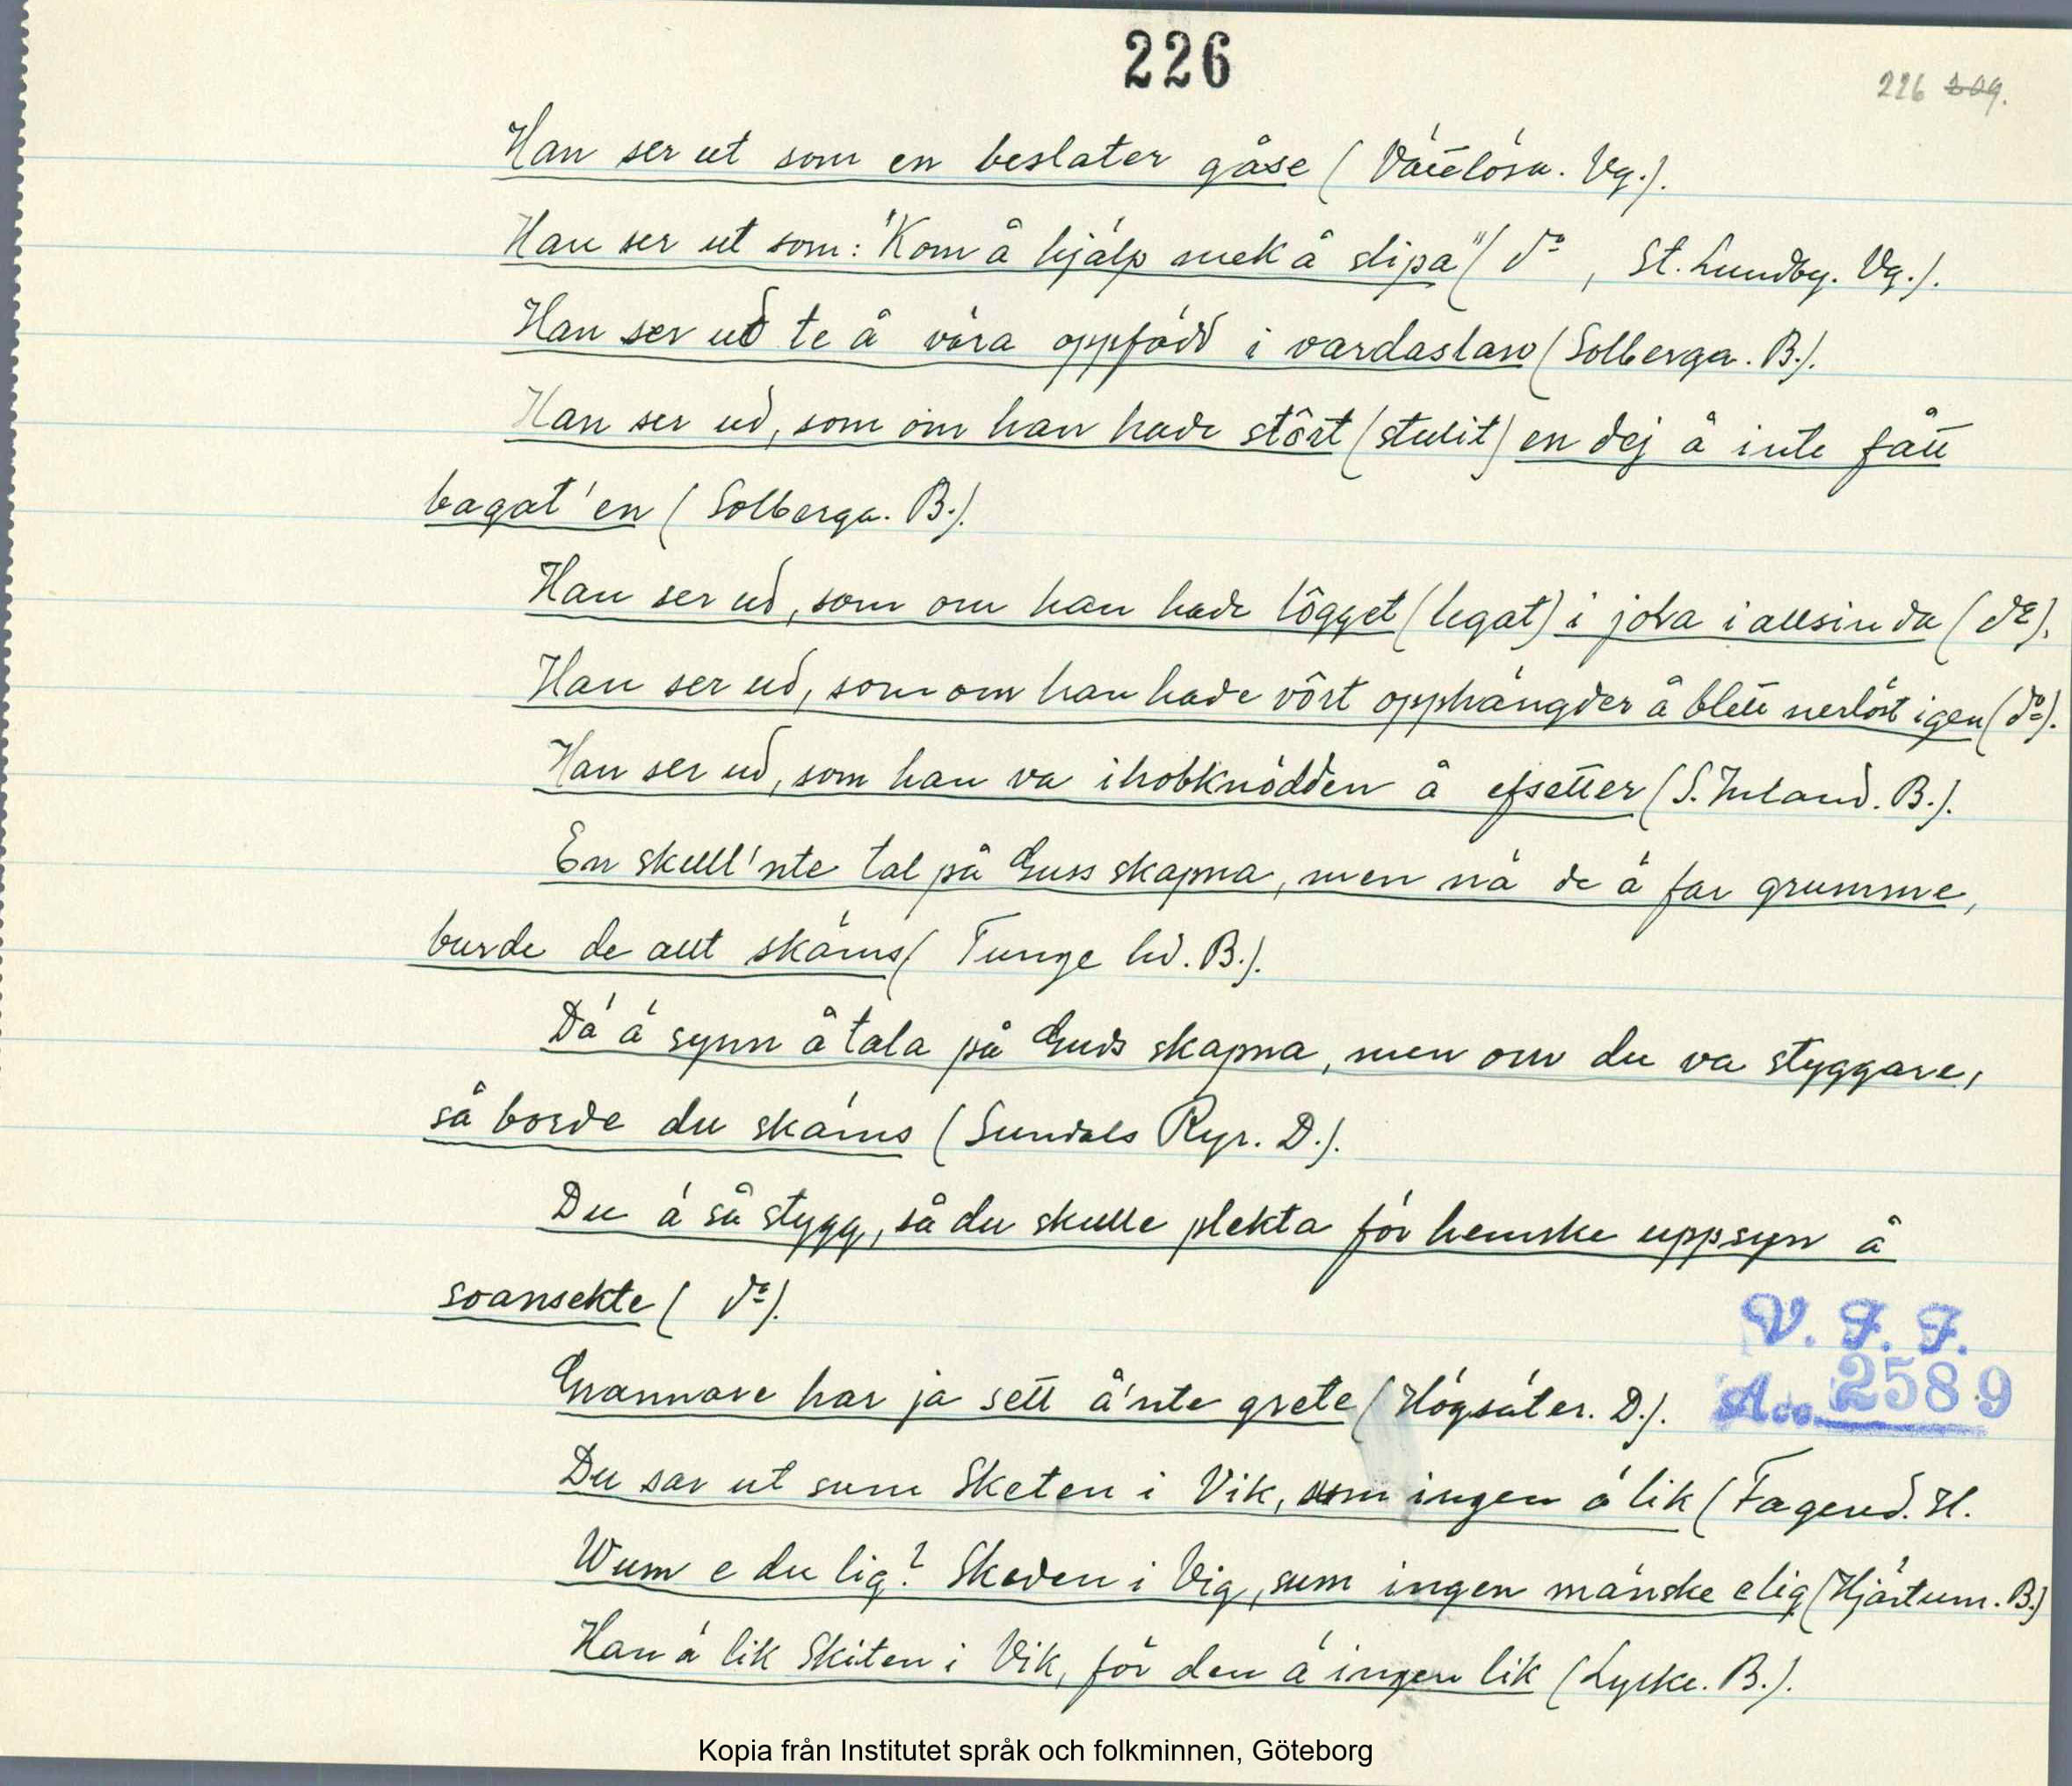 226
226 209.
Han ser ut som en beslater gåse (Vättlösa. Vg.).
Han ser ut som: "Kom å hjälp mek å slipa" (do, St. Lundby. Vg.).
Han ser ud te å våra oppfödd i vardaslaw (Solberga. B.).
Han ser ud, som om han hade stôrt (stulit) en dej å inte fått
bagat 'en (Solberga. B.).
Han ser ud, som om han hade lôgget (legat) i jola i allsin da (do).
Han ser ud, som om han hade vôrt opphängder å blett nerlöst igen (do).
Han ser ud, som han va ihobknödden å efsetter (S. Inland. B.).
En skull'nte tal på Guss skapna, men nä de ä far grumme,
burde de allt skäms (Tunge hd. B.).
Dä ä synn å tala på Guds skapna, men om du va styggare,
så borde du skäms (Sundals Ryr. D.).
Du ä så stygg, så du skulle plekta för hemske uppsyn å
soansekte (do).
V. F. F.
Grannare har ja sett å'nte grete (Högsäter. D.).
Acc. 2589
Du sar ut sum Sketen i Vik, sum ingen ä lik (Fagered. H.
Wum e du lig? Skeden i Vig, sum ingen mänske elig (Hjärtum. B.)
Han ä lik Skiten i Vik, för den ä ingen lik (Lycke. B.).
Kopia från Institutet språk och folkminnen, Göteborg